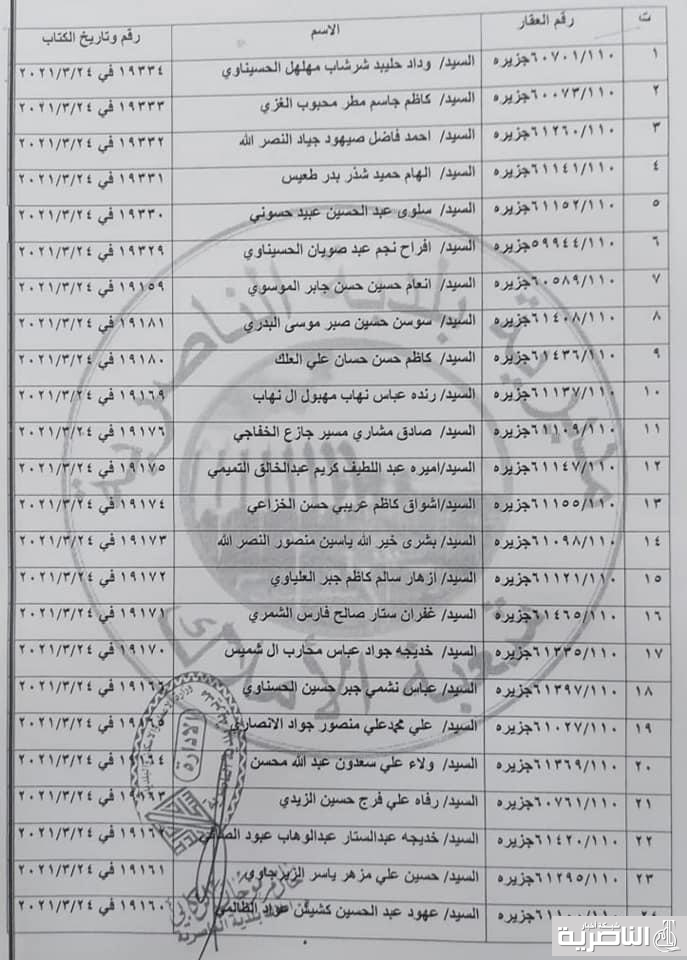 ت رقم العقار الاسم رقم وتاريخ الكتاب
١ ٦٠٧٠١/١١٠جزيره السيد/ وداد حليبد شرشاب مهلهل الحسيناوي ١٩٣٣٤ في ٢٠٢١/٣/٢٤
٢ ٦٠٠٧٣/١١٠جزيره السيد/ كاظم جاسم مطر محبوب الغزي ١٩٣٣٣ في ٢٠٢١/٣/٢٤
٣ ٦١٢٦٠/١١٠جزيره السيد/ احمد فاضل صيهود جياد النصر الله ١٩٣٣٢ في ٢٠٢١/٣/٢٤
٤ ٦١١٤١/١١٠جزيره السيد/ الهام حميد شذر بدر طعيس ١٩٣٣١ في ٢٠٢١/٣/٢٤
٥ ٦١١٥٢/١١٠جزيره السيد/ سلوى عبد الحسين عبيد حسوني ١٩٣٣٠ في ٢٠٢١/٣/٢٤
٦ ٥٩٩٤٤/١١٠جزيره السيد/ افراح نجم عبد صويان الحسيناوي ١٩٣٢٩ في ٢٠٢١/٣/٢٤
٧ ٦٠٥٨٩/١١٠جزيره السيد/ انعام حسين حسن جابر الموسوي ١٩١٥٩ في ٢٠٢١/٣/٢٤
٨ ٦١٤٠٨/١١٠جزيره السيد/ سوسن حسين صبر موسى البدري ١٩١٨١ في ٢٠٢١/٣/٢٤
٩ ٦١٤٣٦/١١٠جزيره السيد/ كاظم حسن حسان علي العلك ١٩١٨٠ في ٢٠٢١/٣/٢٤
١٠ ٦١١٣٧/١١٠جزيره السيد/ رنده عباس نهاب مهبول ال نهاب ١٩١٦٩ في ٢٠٢١/٣/٢٤
١١ ٦١١٠٩/١١٠جزيره السيد/ صادق مشاري مسير جازع الخفاجي ١٩١٧٦ في ٢٠٢١/٣/٢٤
١٢ ٦١١٤٧/١١٠جزيره السيد/اميره عبد اللطيف كريم عبدالخالق التميمي ١٩١٧٥ في ٢٠٢١/٣/٢٤
١٣ ٦١١٥٥/١١٠جزيره السيد/اشواق كاظم عريبي حسن الخزاعي ١٩١٧٤ في ٢٠٢١/٣/٢٤
١٤ ٦١٠٩٨/١١٠جزيره السيد/ بشرى خير الله ياسين منصور النصر الله ١٩١٧٣ في ٢٠٢١/٣/٢٤
١٥ ٦١١٢١/١١٠جزيره السيد/ ازهار سالم كاظم جبر العلياوي ١٩١٧٢ في ٢٠٢١/٣/٢٤
١٦ ٦١٤٦٥/١١٠جزيره السيد/ غفران ستار صالح فارس الشمري ١٩١٧١ في ٢٠٢١/٣/٢٤
١٧ ٦١٢٣٥/١١٠جزيره السيد/ خديجه جواد عباس محارب ال شميس ١٩١٧٠ في ٢٠٢١/٣/٢٤
١٨ ٦١٣٩٧/١١٠جزيره السيد/ عباس نشمي جبر حسين الحسناوي ١٩١٦٦ في ٢٠٢١/٣/٢٤
١٩ ٦١٠٢٧/١١٠جزيره السيد/ علي محمدعلي منصور جواد الانصاري ١٩١٦٥ في ٢٠٢١/٣/٢٤
٢٠ ٦١٣٦٩/١١٠جزيره السيد/ ولاء علي سعدون عبد الله محسن ١٩١٦٤ في ٢٠٢١/٣/٢٤
٢١ ٦٠٧٦١/١١٠جزيره السيد/ رفاه علي فرج حسين الزيدي ١٩١٦٣ في ٢٠٢١/٣/٢٤
٢٢ ٦١٤٢٠/١١٠جزيره السيد/ خديجه عبدالستار عبدالوهاب عبود ١٩١٦٢ في ٢٠٢١/٣/٢٤
٢٣ ٦١٢٩٥/١١٠جزيره السيد/ حسين علي مزهر ياسر الزيرجاوي ١٩١٦١ في ٢٠٢١/٣/٢٤
٢٤ السيد/ عهود عبد الحسين كشيش عواد الظالمي ١٩١٦٠ في ٢٠٢١/٣/٢٤
مديرية بلدية الناصرية
شعبة الأملاك
الادارة
شبكة اخبار
الناصرية